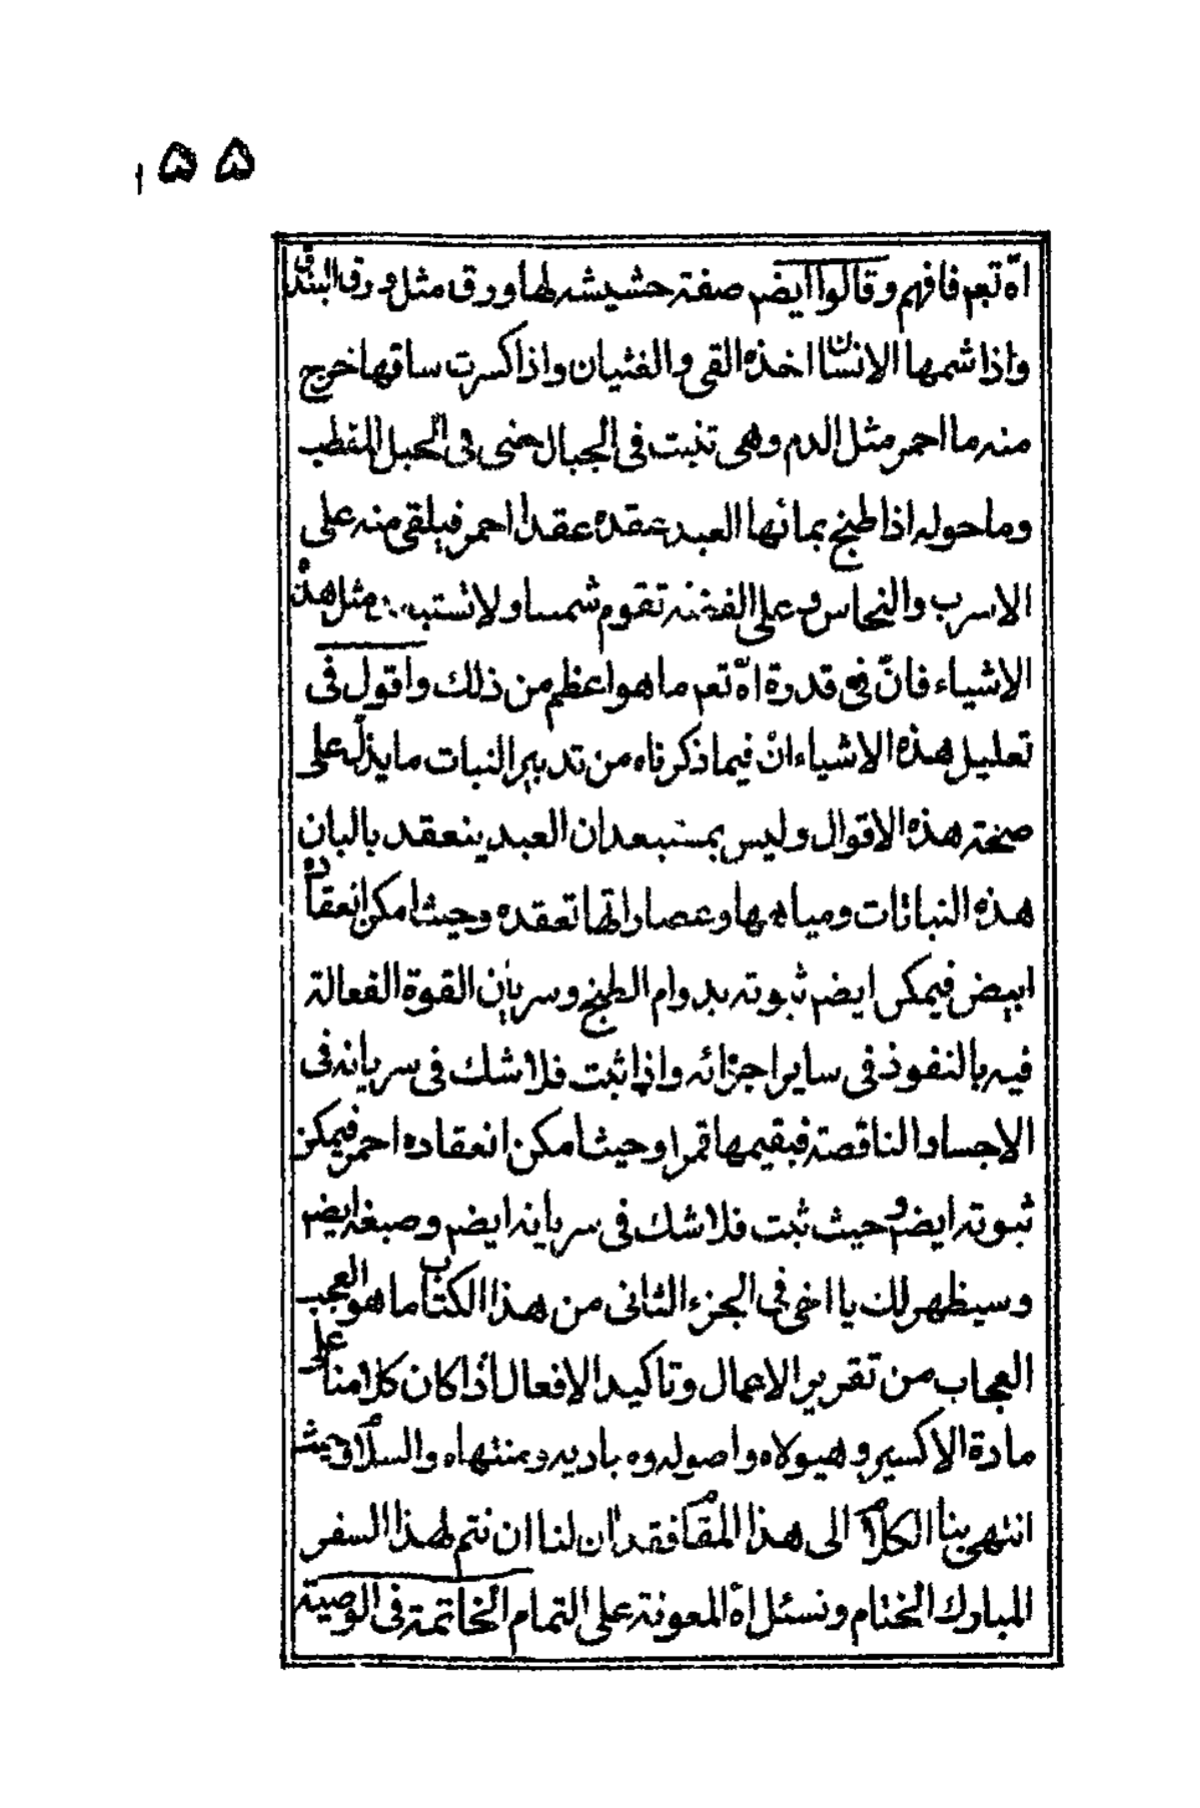 ۱۵۵
اه تعم فافهم وقالوا ايضم صفة حشيشه لها ورق مثل ورق البندق
واذا شمها الانسان اخذه القى والغثيان واذا كسرت ساقها خرج
منه ما احمر مثل الدم وهى تنبت فى الجبال حتى فى الجبل المقطب
وما حوله اذا طبخ بمائها العبد عقده عقدا احمر فيلقى منه على
الاسرب والنحاس وعلى الفضة تقوم شمسا ولا تستبعد مثل هذه
الاشياء فانّ فى قدرة اه تعم ما هو اعظم من ذلك واقول فى
تعليل هذه الاشياء انّ فيما ذكرناه من تدبير النبات ما يذلّ على
صحة هذه الاقوال وليس بمستبعد ان العبد ينعقد بالبان
هذه النباتات ومياهها وعصاراتها تعقده وحيث امكن انعقاده
ابيض فيمكن ايضم ثبوته بدوام الطبخ وسريان القوة الفعالة
فيه بالنفوذ فى ساير اجزائه واذا ثبت فلا شك فى سريانه فى
الاجساد الناقصة فيقيمها قمرا وحيث امكن انعقاده احمر فيمكن
ثبوته ايضم وحيث ثبت فلا شك فى سريانه ايضم وصبغه ايضم
وسيظهر لك يا اخى فى الجزء الثانى من هذا الكتاب ما هو العجب
العجاب من تقرير الاعمال وتاكيد الافعال اذا كان كلامنا على
مادة الاكسير وهيولاه واصوله وه باديه ومنتهاه والسلام وحيث
انتهى بنا الكلام الى هذا المقام فقد ان لنا ان نتم لهذا السفر
المبارك الختام ونسئل اه المعونة على التمام الخاتمة فى الوصية